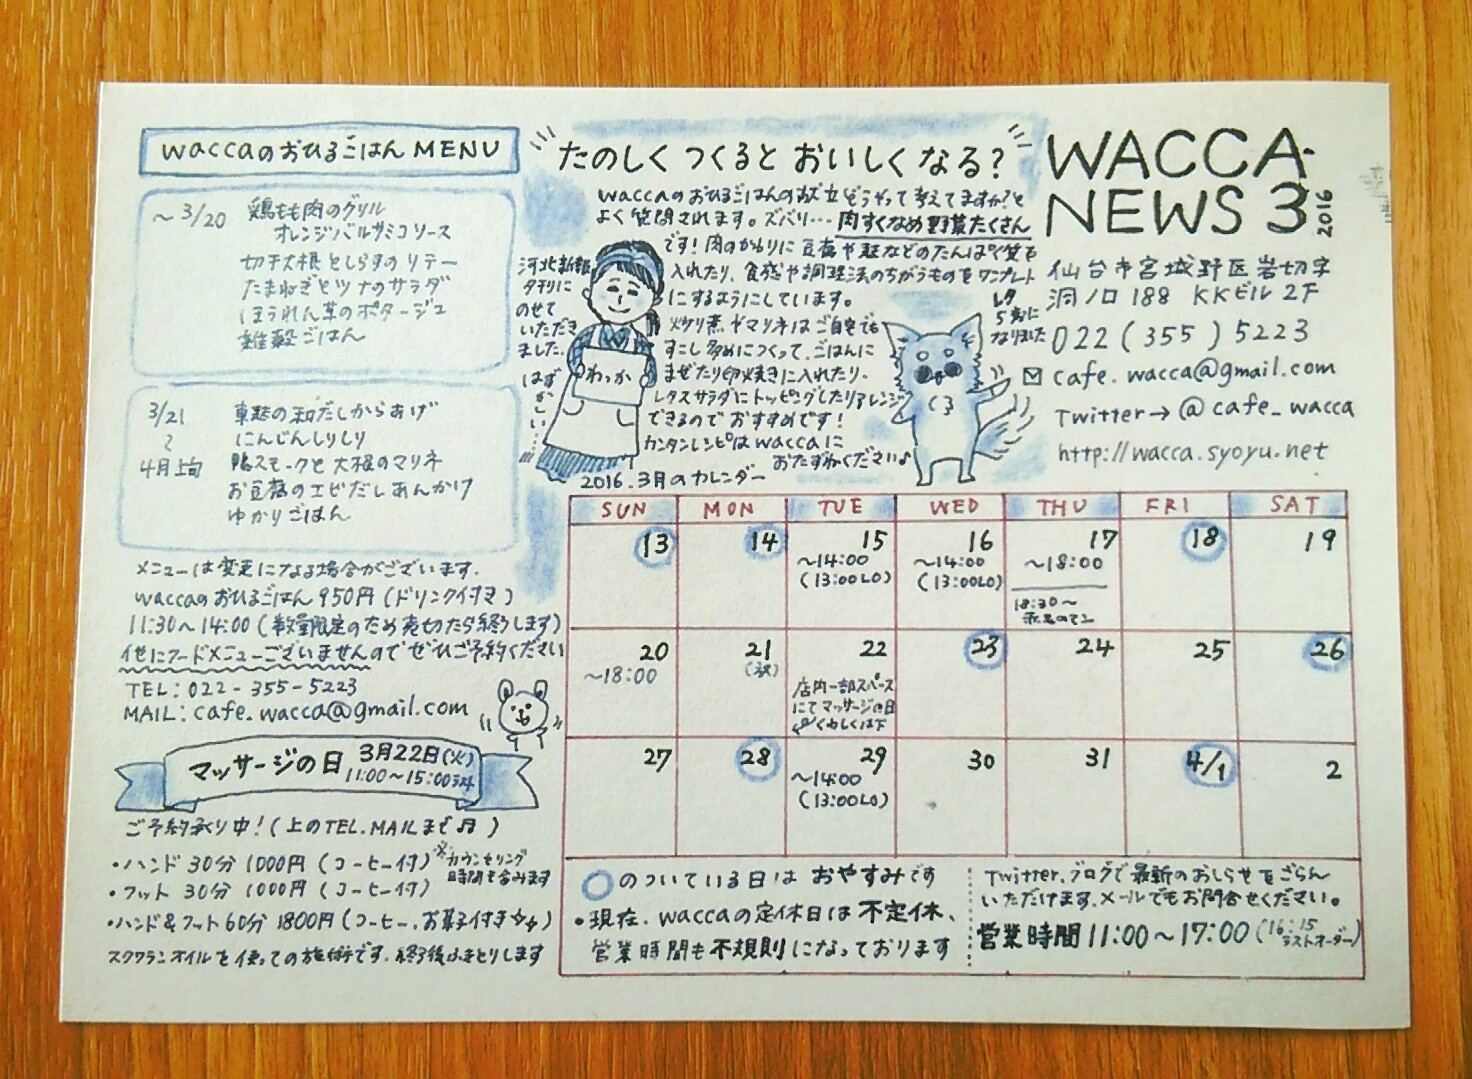 waccaのおひるごはん MENU
～3/20
鶏もも肉のグリル
オレンジバルサミコソース
切干大根としらすのソテー
たまねぎとツナのサラダ
ほうれん草のポタージュ
雑穀ごはん
3/21
～
4月上旬
車麩の和だしからあげ
にんじんしりしり
鴨スモークと大根のマリネ
お豆腐のエビだしあんかけ
ゆかりごはん
メニューは変更になる場合がございます。
waccaのおひるごはん 950円(ドリンク付き)
11:30～14:00(数量限定のため売切たら終了します)
他にフードメニューございませんのでぜひご予約ください
TEL:022-355-5223
MAIL:cafe.wacca@gmail.com
マッサージの日 3月22日(火)
11:00～15:00ラスト
ご予約承り中!(上のTEL.MAILまで♬)
・ハンド 30分 1000円(コーヒー付)
※カウンセリング
時間も含みます
・フット 30分 1000円(コーヒー付)
・ハンド&フット 60分 1800円(コーヒー、お菓子付き☆)
スクワランオイルを使っての施術です。終了後ふきとりします
たのしく つくると おいしく なる?
waccaのおひるごはんの献立どうやって考えてますか?と
よく質問されます。ズバリ…肉すくなめ野菜たくさん
です!肉のかわりに豆腐や麩などのたんぱく質を
入れたり、食感や調理法のちがうものをワンプレート
にするようにしています。
炒り煮やマリネはご自宅でも
すこし多めにつくって、ごはんに
まぜたり卵焼きに入れたり、
レタスサラダにトッピングしたりアレンジ
できるのでおすすめです!
カンタンレシピはwaccaに
おたずねください♪
河北新報
夕刊に
のせて
いただき
ました。
はず
かしい…
わっか
WACCA
NEWS 3
2016
仙台市宮城野区岩切字
洞ノ口188 KKビル2F
022(355)5223
✉ cafe.wacca@gmail.com
Twitter→@cafe_wacca
http://wacca.syoyu.net
5歳に
なりました
2016.3月のカレンダー
SUN MON TUE WED THU FRI SAT
13 14 15 16 17 18 19
～14:00
(13:00LO)
～14:00
(13:00LO)
～18:00
18:30～
20 21 22 23 24 25 26
～18:00
(祝)
店内一部スペース
にてマッサージの日
くわしくは下
27 28 29 30 31 4/1 2
～14:00
(13:00LO)
○のついている日は おやすみです
・現在、waccaの定休日は不定休、
営業時間も不規則になっております
Twitter、ブログで最新のおしらせをごらん
いただけます。メールでもお問合せください。
営業時間11:00～17:00(16:15
ラストオーダー)